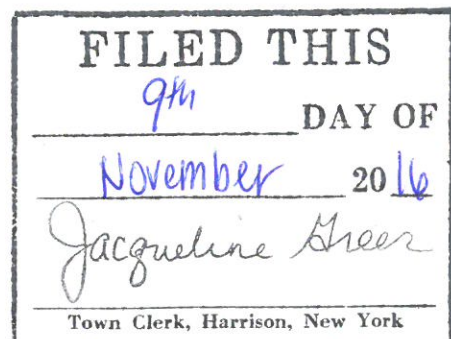 FILED THIS
9th
DAY OF
November 2016
Jacqueline Greer
Town Clerk, Harrison, New York